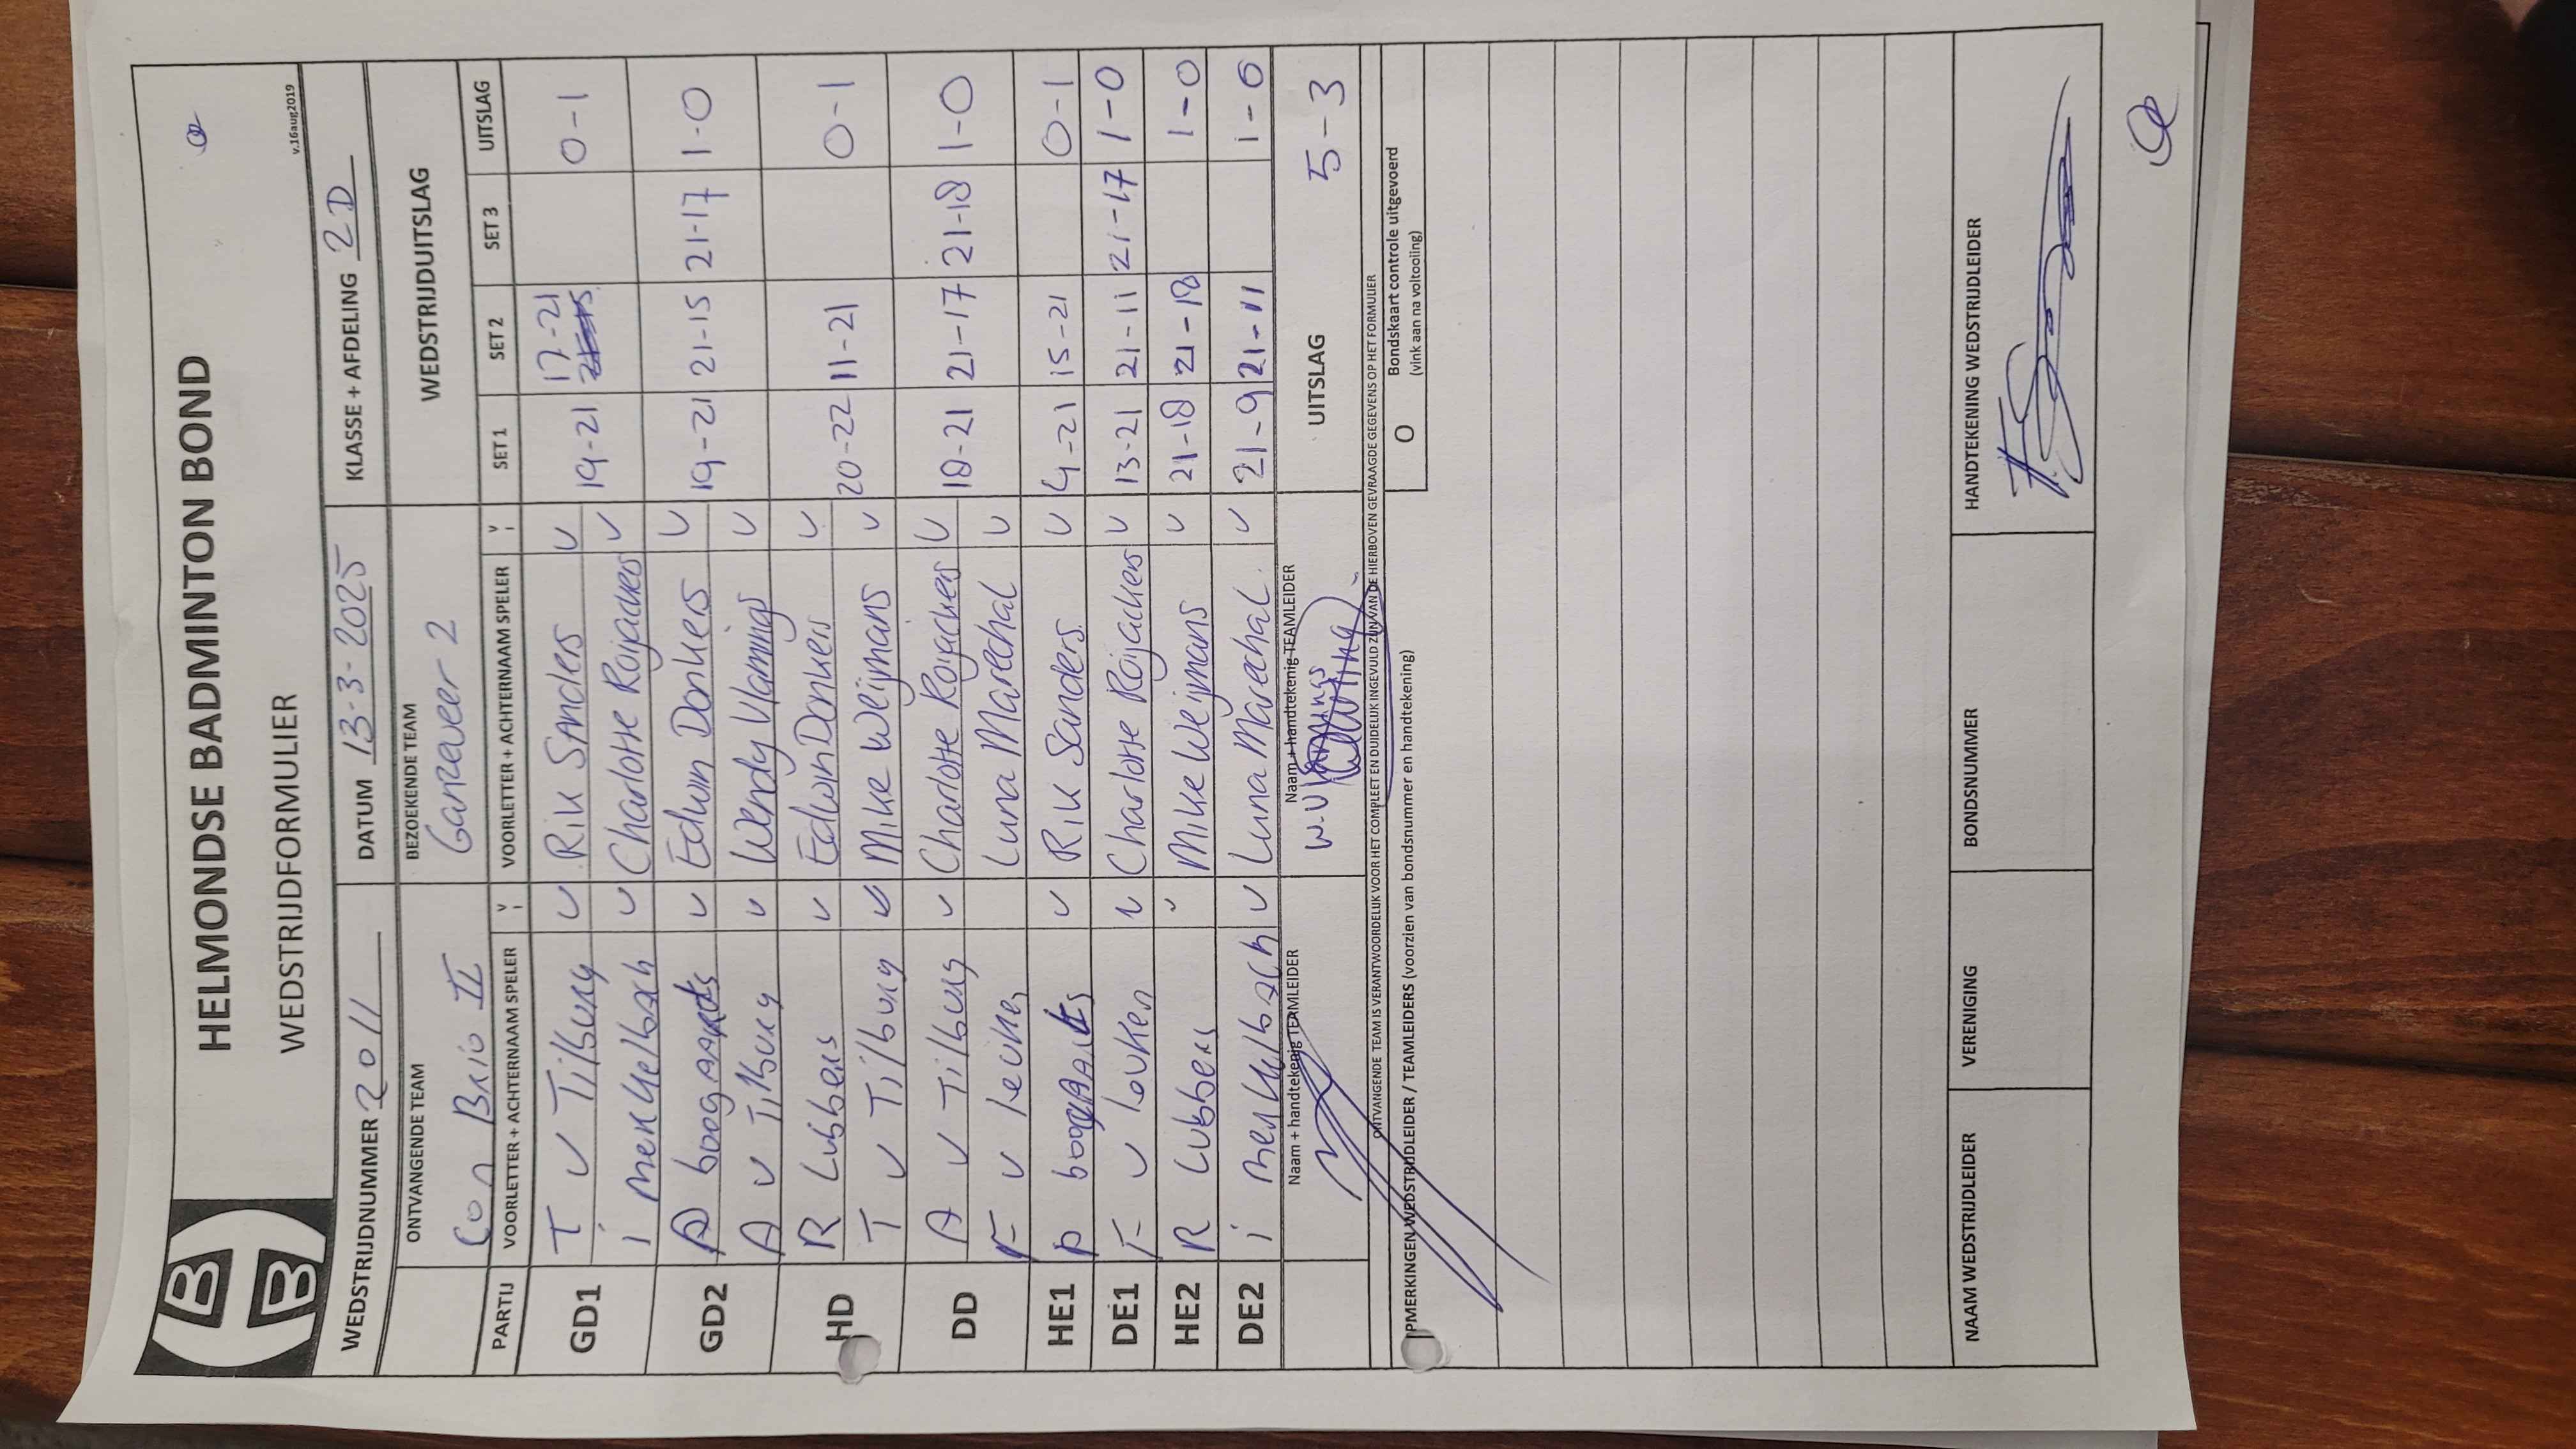 HELMONDSE BADMINTON BOND
WEDSTRIJDFORMULIER
v.16aug2019
WEDSTRIJDNUMMER 2011 DATUM 13-3-2025 KLASSE + AFDELING 2D
ONTVANGENDE TEAM BEZOEKENDE TEAM WEDSTRIJDUITSLAG
Con Brio II Ganzeveer 2
PARTIJ VOORLETTER + ACHTERNAAM SPELER V VOORLETTER + ACHTERNAAM SPELER V SET 1 SET 2 SET 3 UITSLAG
GD1 T v Tilburg v Rik Sanders v 19-21 17-21 0-1
i Menkelbach v Charlotte Roijackers v
GD2 D boogaards v Edwin Donkers v 19-21 21-15 21-17 1-0
A v Tilburg v Wendy Vlamings v
HD R Lubbers v Edwin Donkers v 20-22 11-21 0-1
T v Tilburg v Mike Weijmans v
DD A v Tilburg v Charlotte Roijackers v 18-21 21-17 21-18 1-0
F v leuken Luna Marechal v
HE1 D boogaards v Rik Sanders v 4-21 15-21 0-1
DE1 F v leuken v Charlotte Roijackers v 13-21 21-11 21-17 1-0
HE2 R Lubbers v Mike Weijmans v 21-18 21-18 1-0
DE2 i Menkelbach v Luna Marechal. v 21-9 21-11 1-0
Naam + handtekenig TEAMLEIDER Naam + handtekenig TEAMLEIDER UITSLAG 5-3
W.Vlamings
ONTVANGENDE TEAM IS VERANTWOORDELIJK VOOR HET COMPLEET EN DUIDELIJK INGEVULD ZIJN VAN DE HIERBOVEN GEVRAAGDE GEGEVENS OP HET FORMULIER
OPMERKINGEN WEDSTRIJDLEIDER / TEAMLEIDERS (voorzien van bondsnummer en handtekening)
O Bondskaart controle uitgevoerd
(vink aan na voltooiing)
NAAM WEDSTRIJDLEIDER VERENIGING BONDSNUMMER HANDTEKENING WEDSTRIJDLEIDER